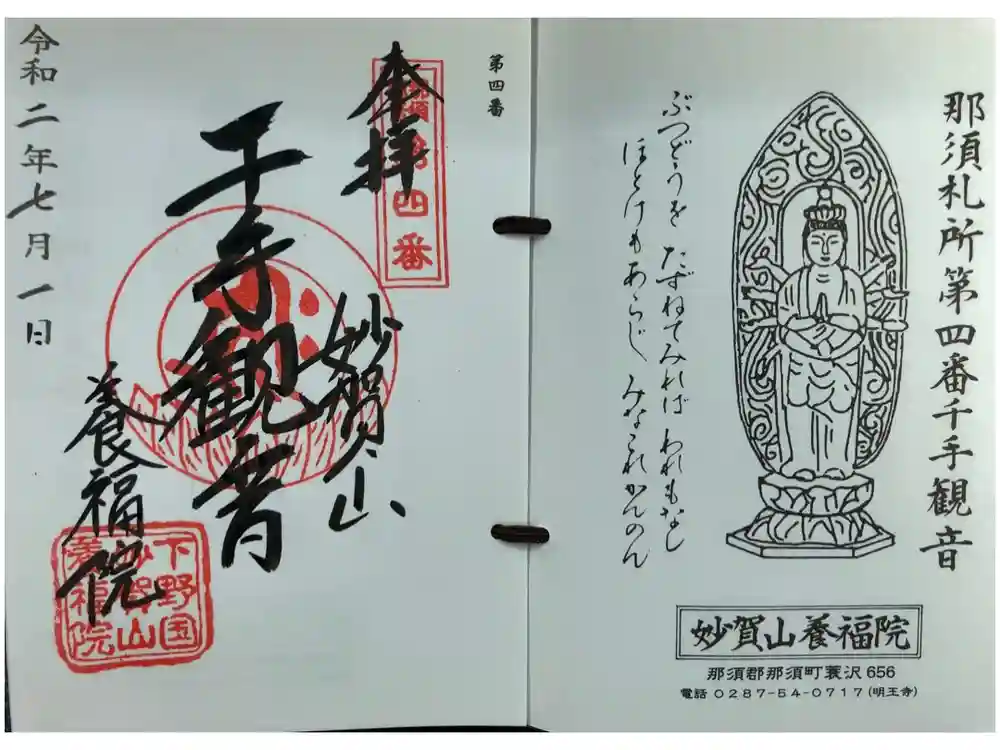 那須札所第四番千手観音
ぶつどうを たずねてみれば われもなし
ほとけもあらじ みなこれかんのん
妙賀山養福院
那須郡那須町蓑沢 656
電話 0287-54-0717 (明王寺)
第四番
奉拝
那須
第四番
妙賀山
千手観音
養福院
下野国
妙賀山
養福院
令和二年七月一日